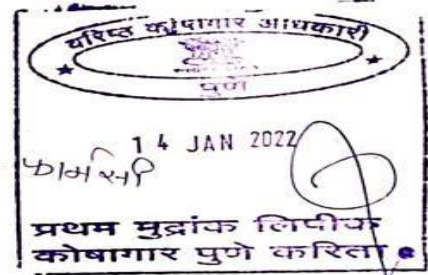 वरिष्ठ कोषागार अधिकारी
पुणे
14 JAN 2022
प्रथम मुद्रांक लिपीक
कोषागार पुणे करिता